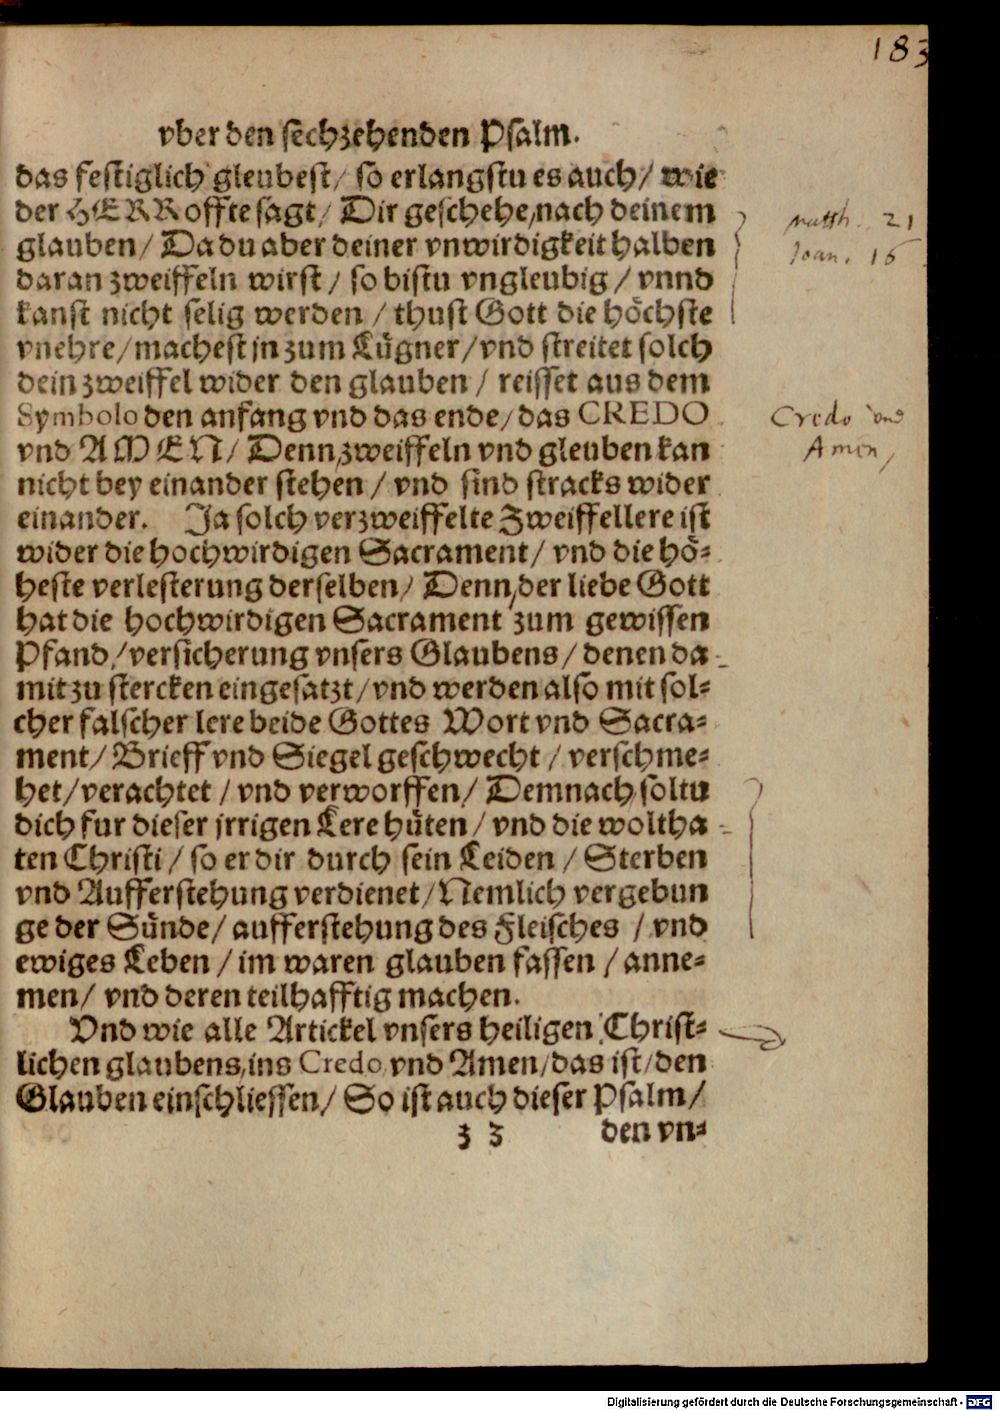 183
vber den sechzehenden Psalm.
das festiglich gleubest/ so erlangstu es auch/ wie
der HERR offte sagt/ Dir geschehe/nach deinem
glauben/ Da du aber deiner vnwirdigkeit halben
daran zweiffeln wirst/ so bistu vngleubig/ vnnd
kanst nicht selig werden/ thust Gott die höchste
vnehre/machest jn zum Lügner/vnd streitet solch
dein zweiffel wider den glauben/ reisset aus dem
Symbolo den anfang vnd das ende/das CREDO
vnd AMEN/ Denn zweiffeln vnd gleuben kan
nicht bey einander stehen/ vnd sind stracks wider
einander. Ja solch verzweiffelte Zweiffellere ist
wider die hochwirdigen Sacrament/ vnd die hö-
heste verlesterung derselben/ Denn der liebe Gott
hat die hochwirdigen Sacrament zum gewissen
Pfand/versicherung vnsers Glaubens/denen da
mit zu stercken eingesatzt/vnd werden also mit sol-
cher falscher lere beide Gottes Wort vnd Sacra-
ment/ Brieff vnd Siegel geschwecht/ verschme-
het/verachtet/ vnd verworffen/ Demnach soltu
dich fur dieser jrrigen Lere hüten/ vnd die woltha
ten Christi/ so er dir durch sein Leiden/ Sterben
vnd Aufferstehung verdienet/Nemlich vergebun
ge der Sünde/ aufferstehung des Fleisches/ vnd
ewiges Leben/ im waren glauben fassen/ anne-
men/ vnd deren teilhafftig machen.
Vnd wie alle Artickel vnsers heiligen Christ-
lichen glaubens/ins Credo vnd Amen/das ist/den
Glauben einschliessen/ So ist auch dieser Psalm/
z 3 den vn-
matth. 21
Joan. 16
Credo und
Amen
Digitalisierung gefördert durch die Deutsche Forschungsgemeinschaft - DFG